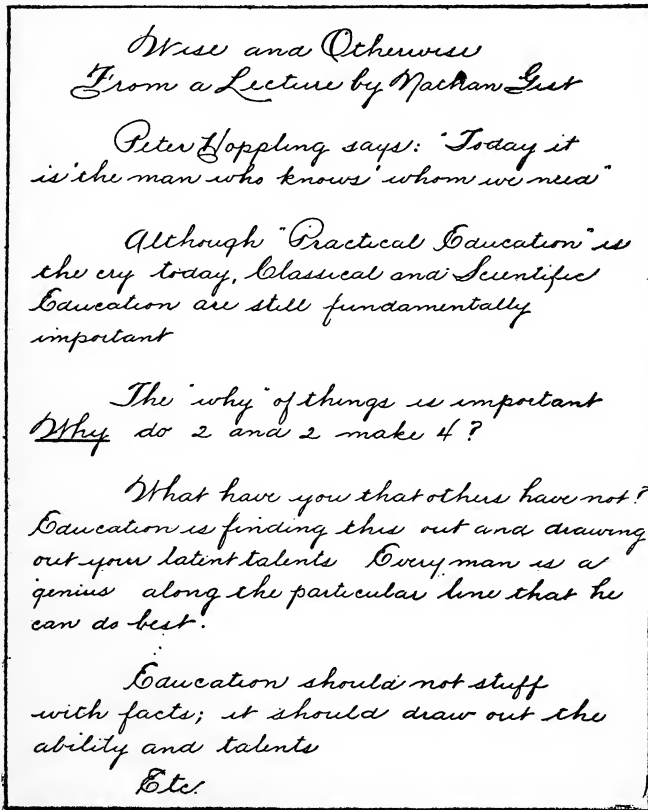 Wise and Otherwise
From a Lecture by Nathan Gist
Peter Hoppling says: "Today it
is 'the man who knows' whom we need"
Although "Practical Education" is
the cry today, Classical and Scientific
Education are still fundamentally
important
The "why" of things is important
Why do 2 and 2 make 4?
What have you that others have not?
Education is finding this out and drawing
out your latent talents Every man is a
genius along the particular line that he
can do best.
Education should not stuff
with facts; it should draw out the
ability and talents
Etc.